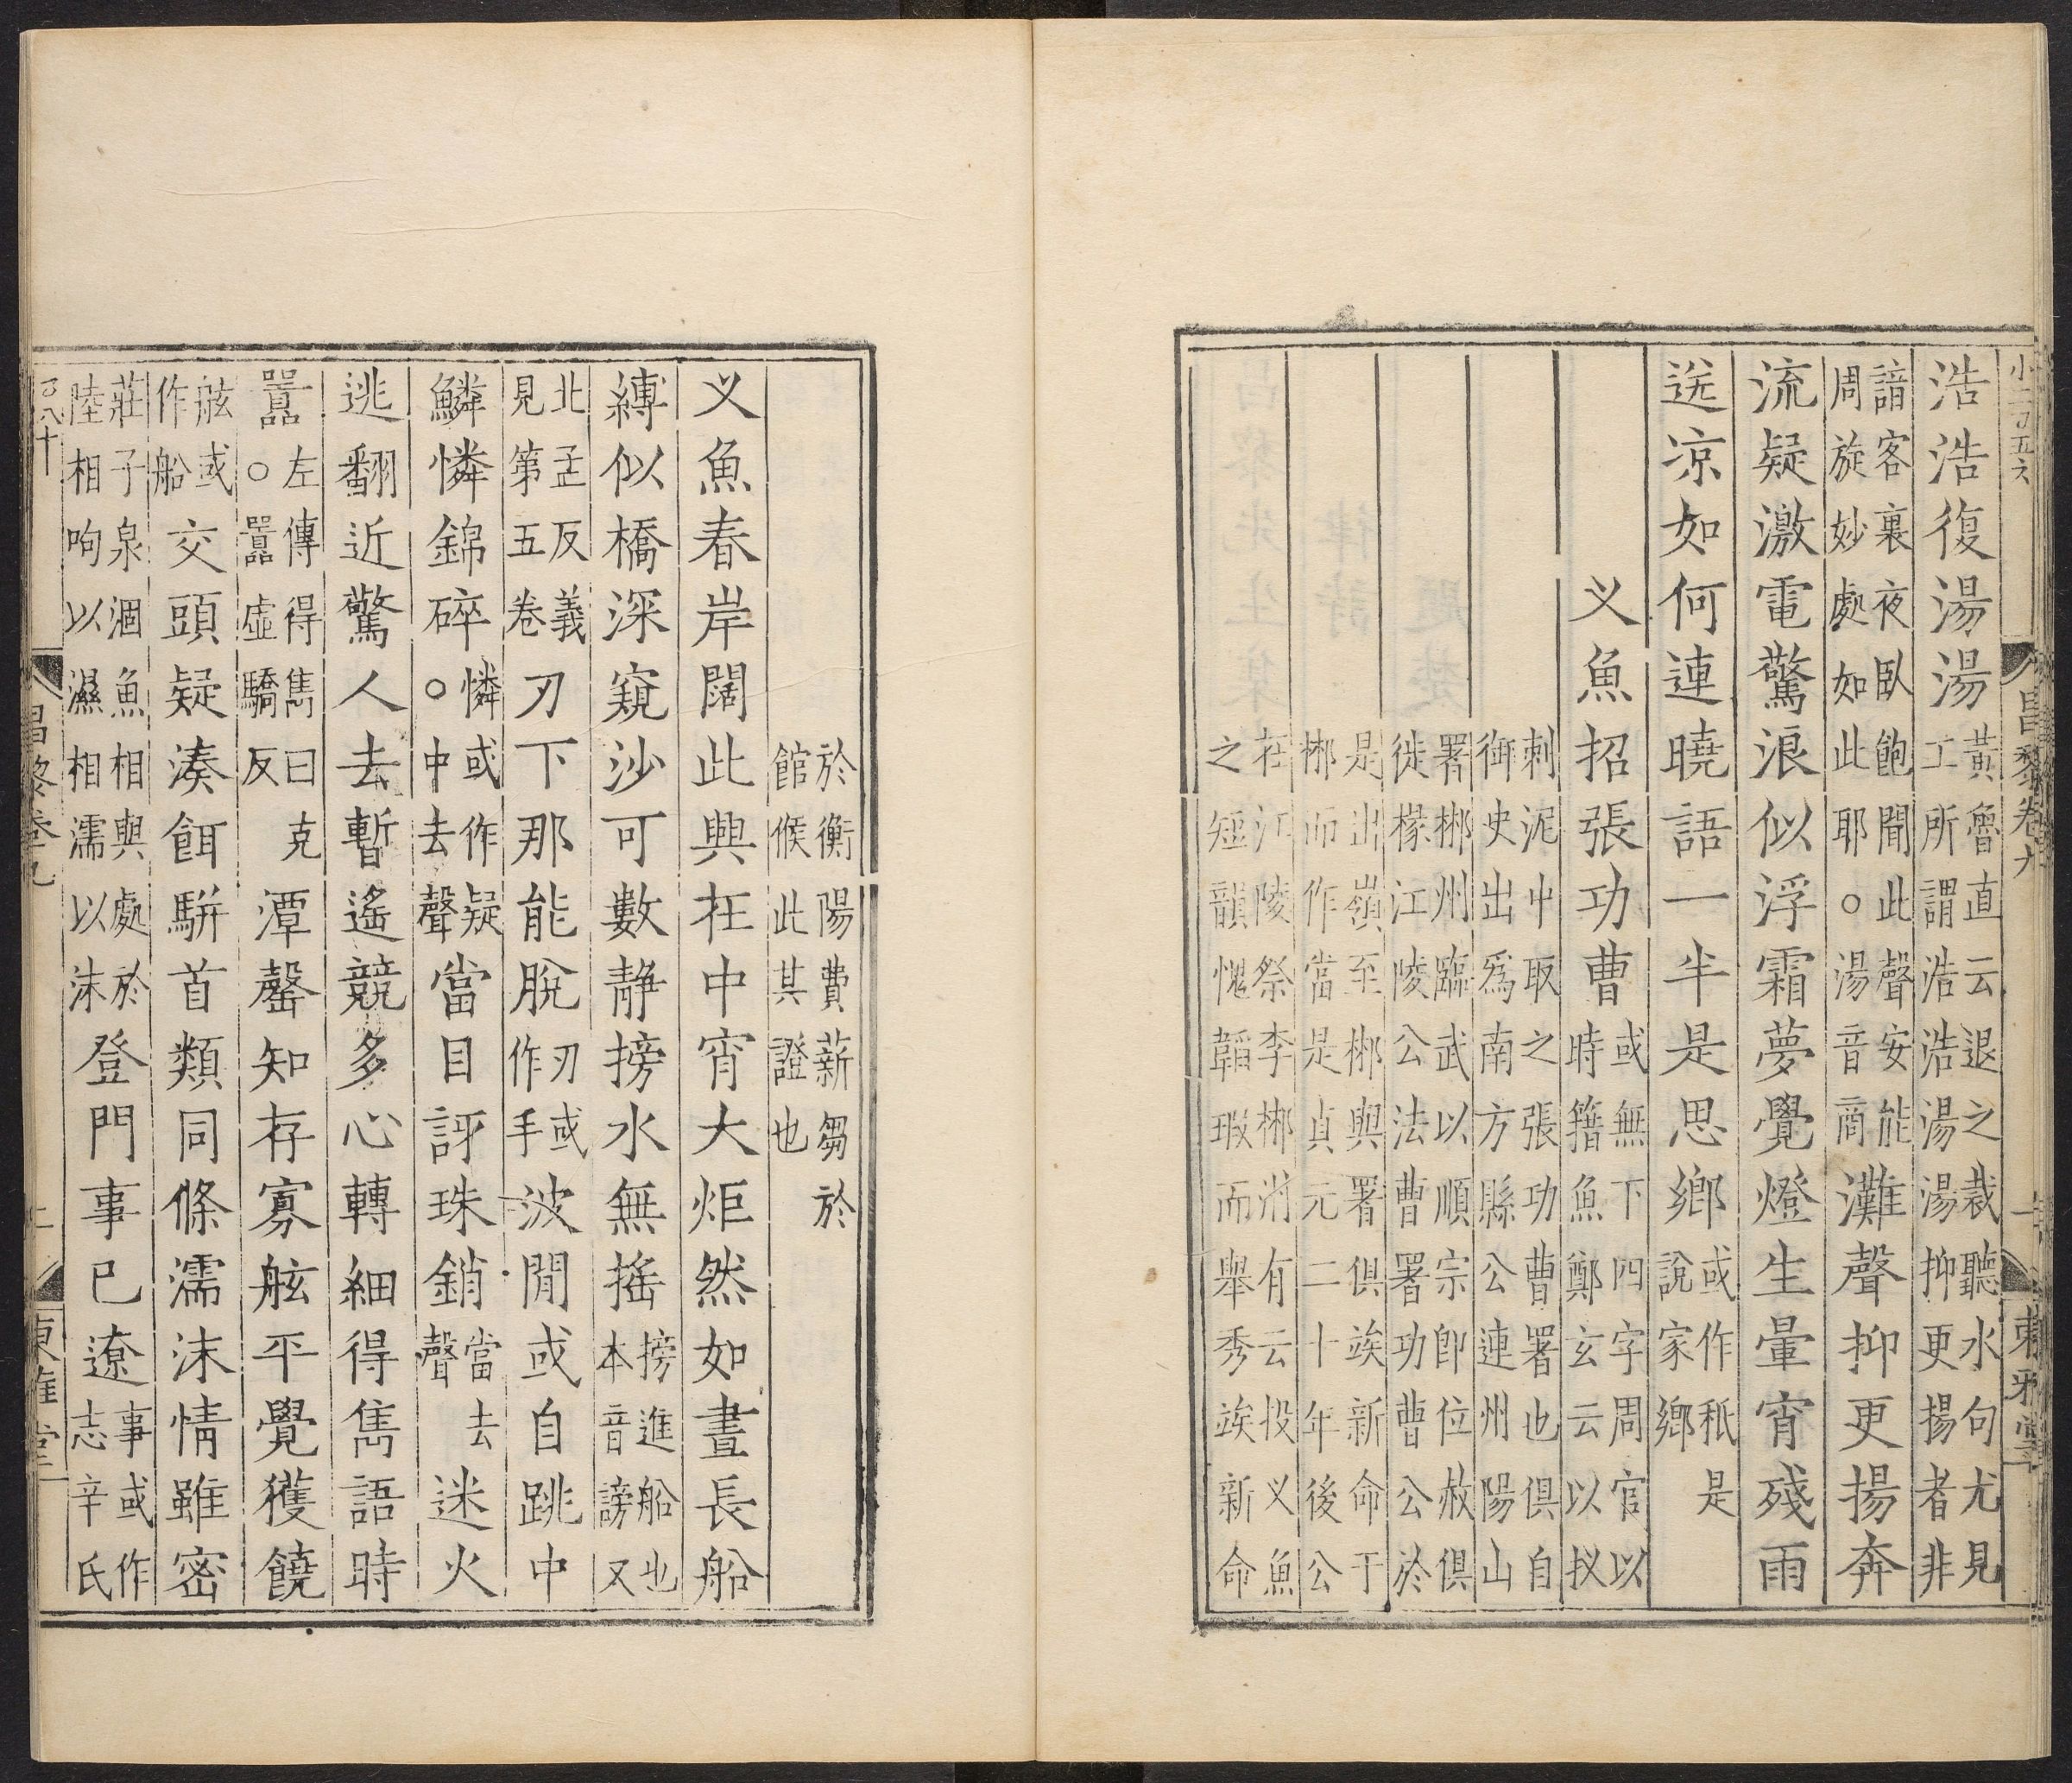 小二百五六
昌黎卷九
一
東雅堂
浩浩復湯湯黃魯直云退之裁聽水句尤見工所謂浩浩湯湯抑更揚者非
諳客裏夜臥飽聞此聲安能周旋妙處如此耶○湯音商灘聲抑更揚奔
流疑激電驚浪似浮霜夢覺燈生暈宵殘雨
送凉如何連曉語一半是思鄉或作秖是說家鄉
义魚招張功曹或無下四字周官以時籍魚鄭玄云以扠
刺泥中取之張功曹署也俱自御史出爲南方縣公連州陽山
署郴州臨武以順宗卽位赦俱徙掾江陵公法曹署功曹公於
是出嶺至郴與署俱竢新命于郴而作當是貞元二十年後公
在江陵祭李郴州有云投义魚之短韻愧韜瑕而舉秀竢新命
於衡陽費薪芻於館候此其證也
义魚春岸闊此興在中宵大炬然如晝長船
縛似橋深窺沙可數静搒水無搖搒進船也本音謗又
北孟反義見第五卷刃下那能脫刃或作手波閒或自跳中
鱗憐錦碎憐或作疑○中去聲當目訝珠銷當去聲迷火
逃翻近驚人去暫遙競多心轉細得雋語時
嚻左傳得雋曰克○嚻虛驕反潭罄知存寡舷平覺獲饒
舷或作船交頭疑湊餌駢首類同條濡沫情雖密
莊子泉涸魚相與處於陸相呴以濕相濡以沫登門事已遼事或作志辛氏
百八十
昌黎卷九
東雅堂